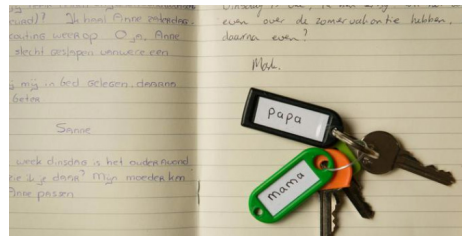 ound)? Ik haal Anne zaterdag
couting weer op. O ja, Anne
slecht geslapen vanwege een
mij in bed gelegen, daarna
geten
Sanne
week dinsdag is het ouderavond
zie ik je daar? Mijn moeder kan
Anne passen
even over de zomervakantie hebben,
daarna even?
Mark.
papa
mama